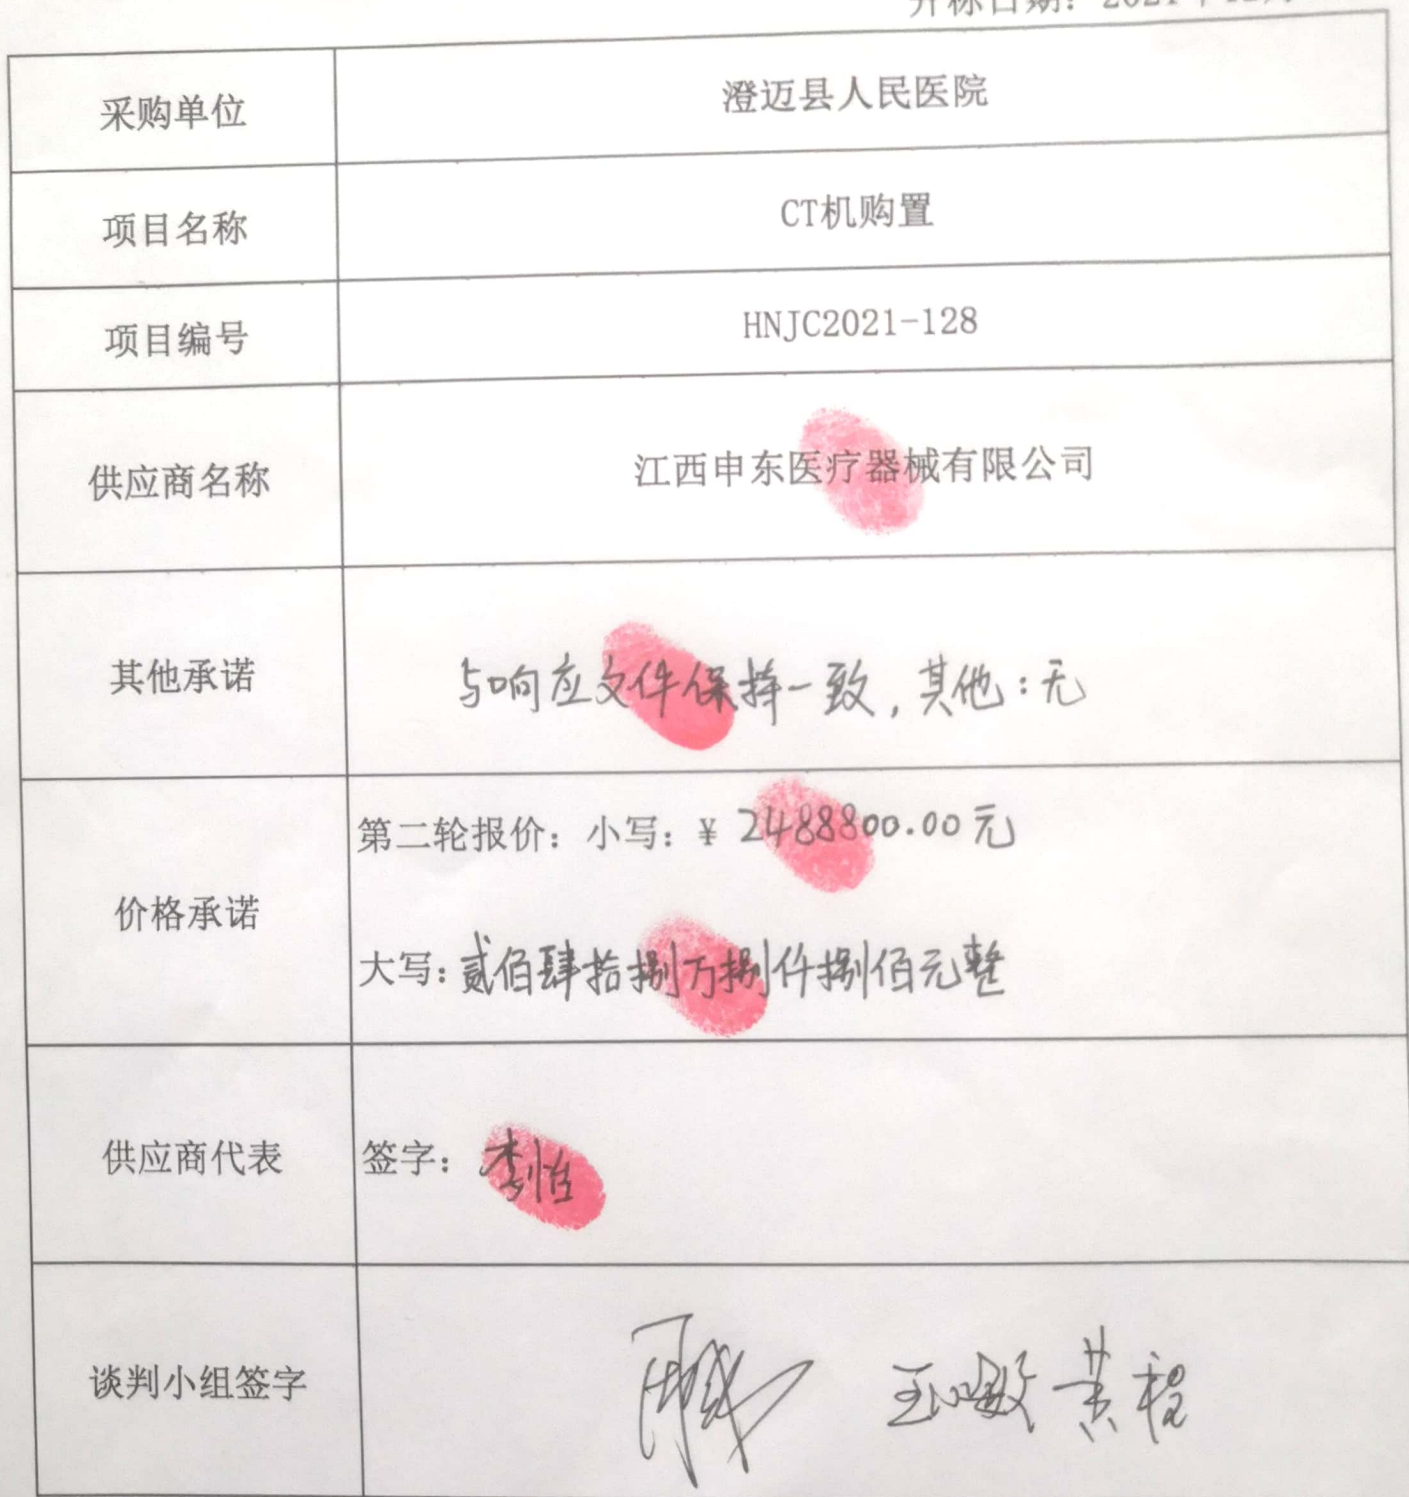 开标日期: 2021年12月
采购单位 澄迈县人民医院
项目名称 CT机购置
项目编号 HNJC2021-128
供应商名称 江西申东医疗器械有限公司
其他承诺 与响应文件保持一致,其他:无
价格承诺
第二轮报价: 小写: ¥ 2488800.00元
大写: 贰佰肆拾捌万捌仟捌佰元整
供应商代表 签字:
谈判小组签字 黄程